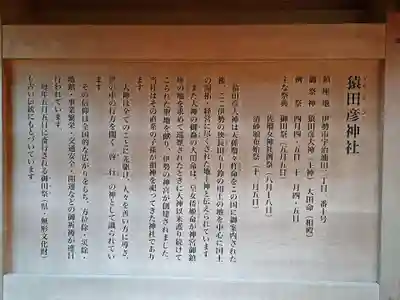 猿田彦神社
鎮座地 伊勢市宇治浦田二丁目一番十号
御祭神 猿田彦大神(主神) 大田命(相殿)
例祭 四月四・五日 十月四・五日
主な祭典 御田祭(五月五日)
佐瑠女神社例祭(八月十八日)
猿田彦大神は天孫瓊々杵命をこの国に御案内された
後、ここ伊勢の狭長田五十鈴の川上の地を中心に国土
の開拓・経営に尽くされた地主神と伝えられています
また大神の御裔の大田命は、皇女倭姫命が神宮御鎮
座の地を求めて巡歴されたときに大神以来護り続けて
こられた聖地を献り、伊勢の神宮が創建されました
当社はその直系の子孫が御神を奉ってきた神社であり
ます
大神は全てのことに先駆け、人々を善い方に導き、
世の中の行方を開く「啓行」の神として識られてい
ます
その信仰は全国的な広がりをもち、方位除・災除・
地鎮・事業繁栄・交通安全・開運などの御祈祷が連日
行われています
毎年五月五日に斎行される御田祭(県・無形文化財)
も古い伝統にもとづいています